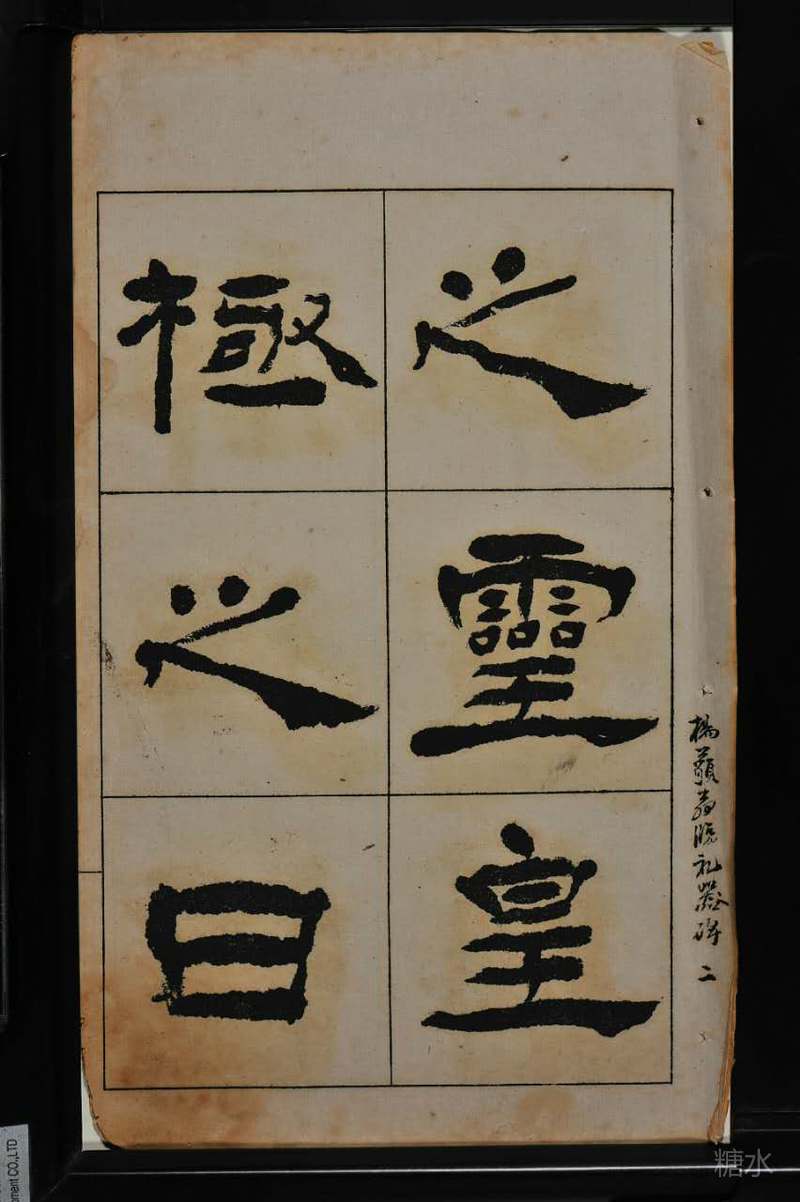 之靈皇
極之日
楊藐翁臨礼器碑 二
ment CO.,LTD
糖水